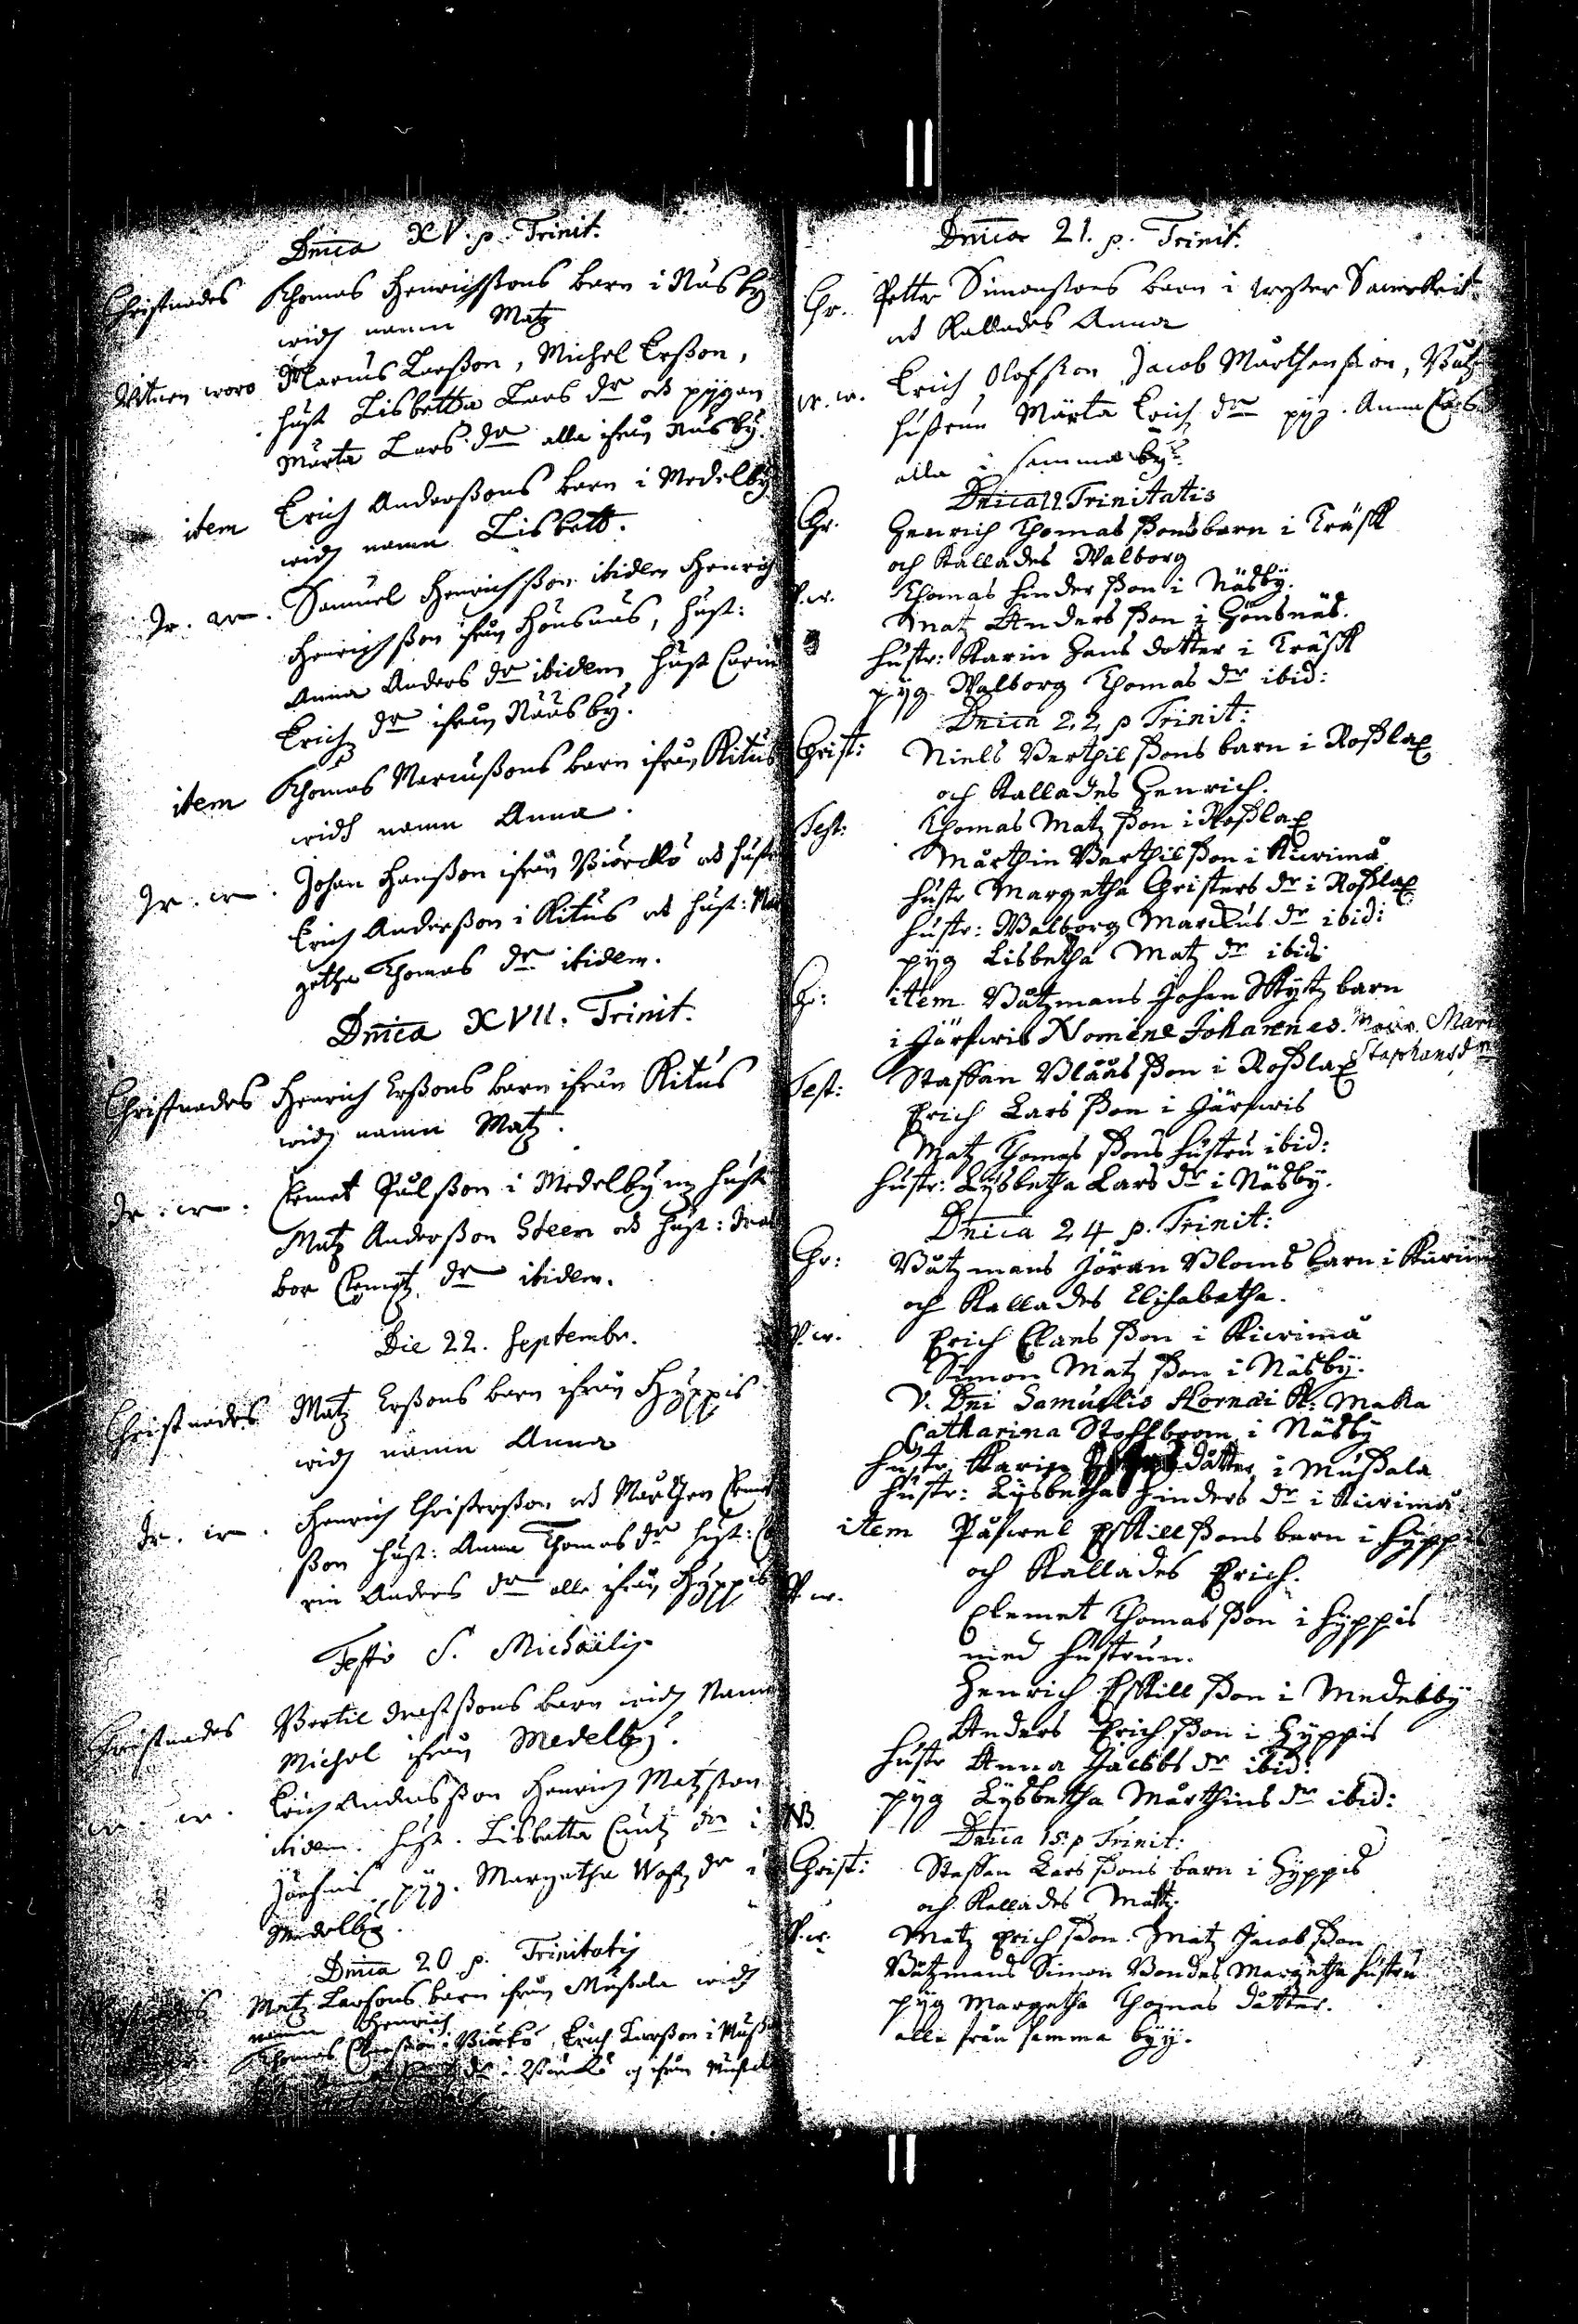 Dnica XV. p. Trinit.
Christnades Thomas Henrichssons barn i Näsby
widh namn Matz
Witnen woro Marcus Larsson, Michel Ersson,
hust Lisbetta Lars dr och pygan
Märta Lars dr alla ifrån Näsby.
item Erich Anderssons barn i Medelby
widh namn Lisbett.
Samuel Henrichsson ibidem Henrich
Henrichsson ifrån Hönsnäs, hust:
Anna Anders dr ibidem hust Carin
Erich dr ifrån Näsby.
item Thomas Marcussons barn ifrån Kitus
widh namn Anna.
Johan Hansson ifrån Biörckö och hustr
Erich Andersson i Kitus och hust: Mar
getha Thomas dr ibidem.
Dnica XVII. Trinit.
Christnades Henrich Erssons barn ifrån Kitus
widh namn Matz.
Clemet Pålsson i Medelby hust
Matz Andersson Steen och hust: Wal
bor Clemetz dr ibidem.
Die 22. Septembr.
Christnades Matz Erssons barn ifrån Hyppis
widh namn Anna
Henrich Christersson och Mårthen Clemet
sson hust: Anna Thomas dr hust: Ca
rin Anders dr alla ifrån Hyppis
Festo S. Michaëlis
Christnades Bertil barn widh Namn
Michel ifrån Medelby.
Erich Andersson Henrich Matzson
ibidem. hust. Lisbetta dr i
pyg. Margetha dr i
Medelby.
Dnica 20 p. Trinitatis
Matz Larsons barn ifrån Mussala widh
namn Henrich
Thomas Biörkö, Erich Larsson i Mussa
dr i Biörckö och ifrån Mussala
Dnica 21. p. Trinit.
Chr. Petter Simonssons barn i
och Kallades Anna
w. w. Erich Olofsson Jacob Mårthensson, Båtz
hustrun Märta Erich dr pyg. Anna
alla i samma by.
Dnica 12 Trinitatis
Chr. Henrich Thomas ssons barn i Träsk
och Kallades Walborg
W. w. Thomas Hindersson i Näsby.
Matz Andersson i Hönsnäs.
hustr: Karin Hans dotter i Träsk
pyg. Walborg Thomas dr ibid:
Dnica 22 p Trinit:
Christ: Niels Berthilssons barn i Rosslax
och Kallades Henrich.
Test: Thomas Matzson i Rosslax
Mårthin Berthilsson i Kiurima
hustr Margetha Christers dr i Rosslax
hustr: Walborg Marckus dr ibid:
pyg Lisbetha Matz dr ibid:
Chr: item Båtzmans Johan Skytz barn
i Järfwis Nomine Johannes. Moder. Mar
Stephans dr
Test: Staffan Blååsson i Rosslax
Erich Larsson i Järfwis
Matz Thomassons hustru ibid:
hustr: Lysbetha Lars dr i Näsby.
Dnica 24 p. Trinit:
Chr: Båtzmans Jöran Bloms barn i Kiurima
och Kallades Elisabetha.
W. w. Erich Clasesson i Kiurima
Simon Matzson i Näsby.
V. Dni Samuelis Hornæi K: Maka
Catharina Stohlboom i Näsby
hustr Karin dåtter i Mussala
hustr: Lysbetha Hinders dr i Kiurima
item Påfwel Eskillssons barn i Hyppis
och Kallades Erich.
W. w. Clemet Thomasson i Hyppis
med hustrun.
Henrich Eskillsson i Medelby
Anders Erichsson i Hyppis
hustr Anna Jacobs dr ibid:
pyg Lysbetha Mårthins dr ibid:
NB. Dnica 15. p Trinit:
Christ: Staffan Larssons barn i Hyppis
och Kallades Matz.
W. w. Matz Erichsson. Matz Jacobsson
Båtzmans Simon Bondes Margetha hustru
pyg Margetha Thomas dåtter.
alla från samma byy.